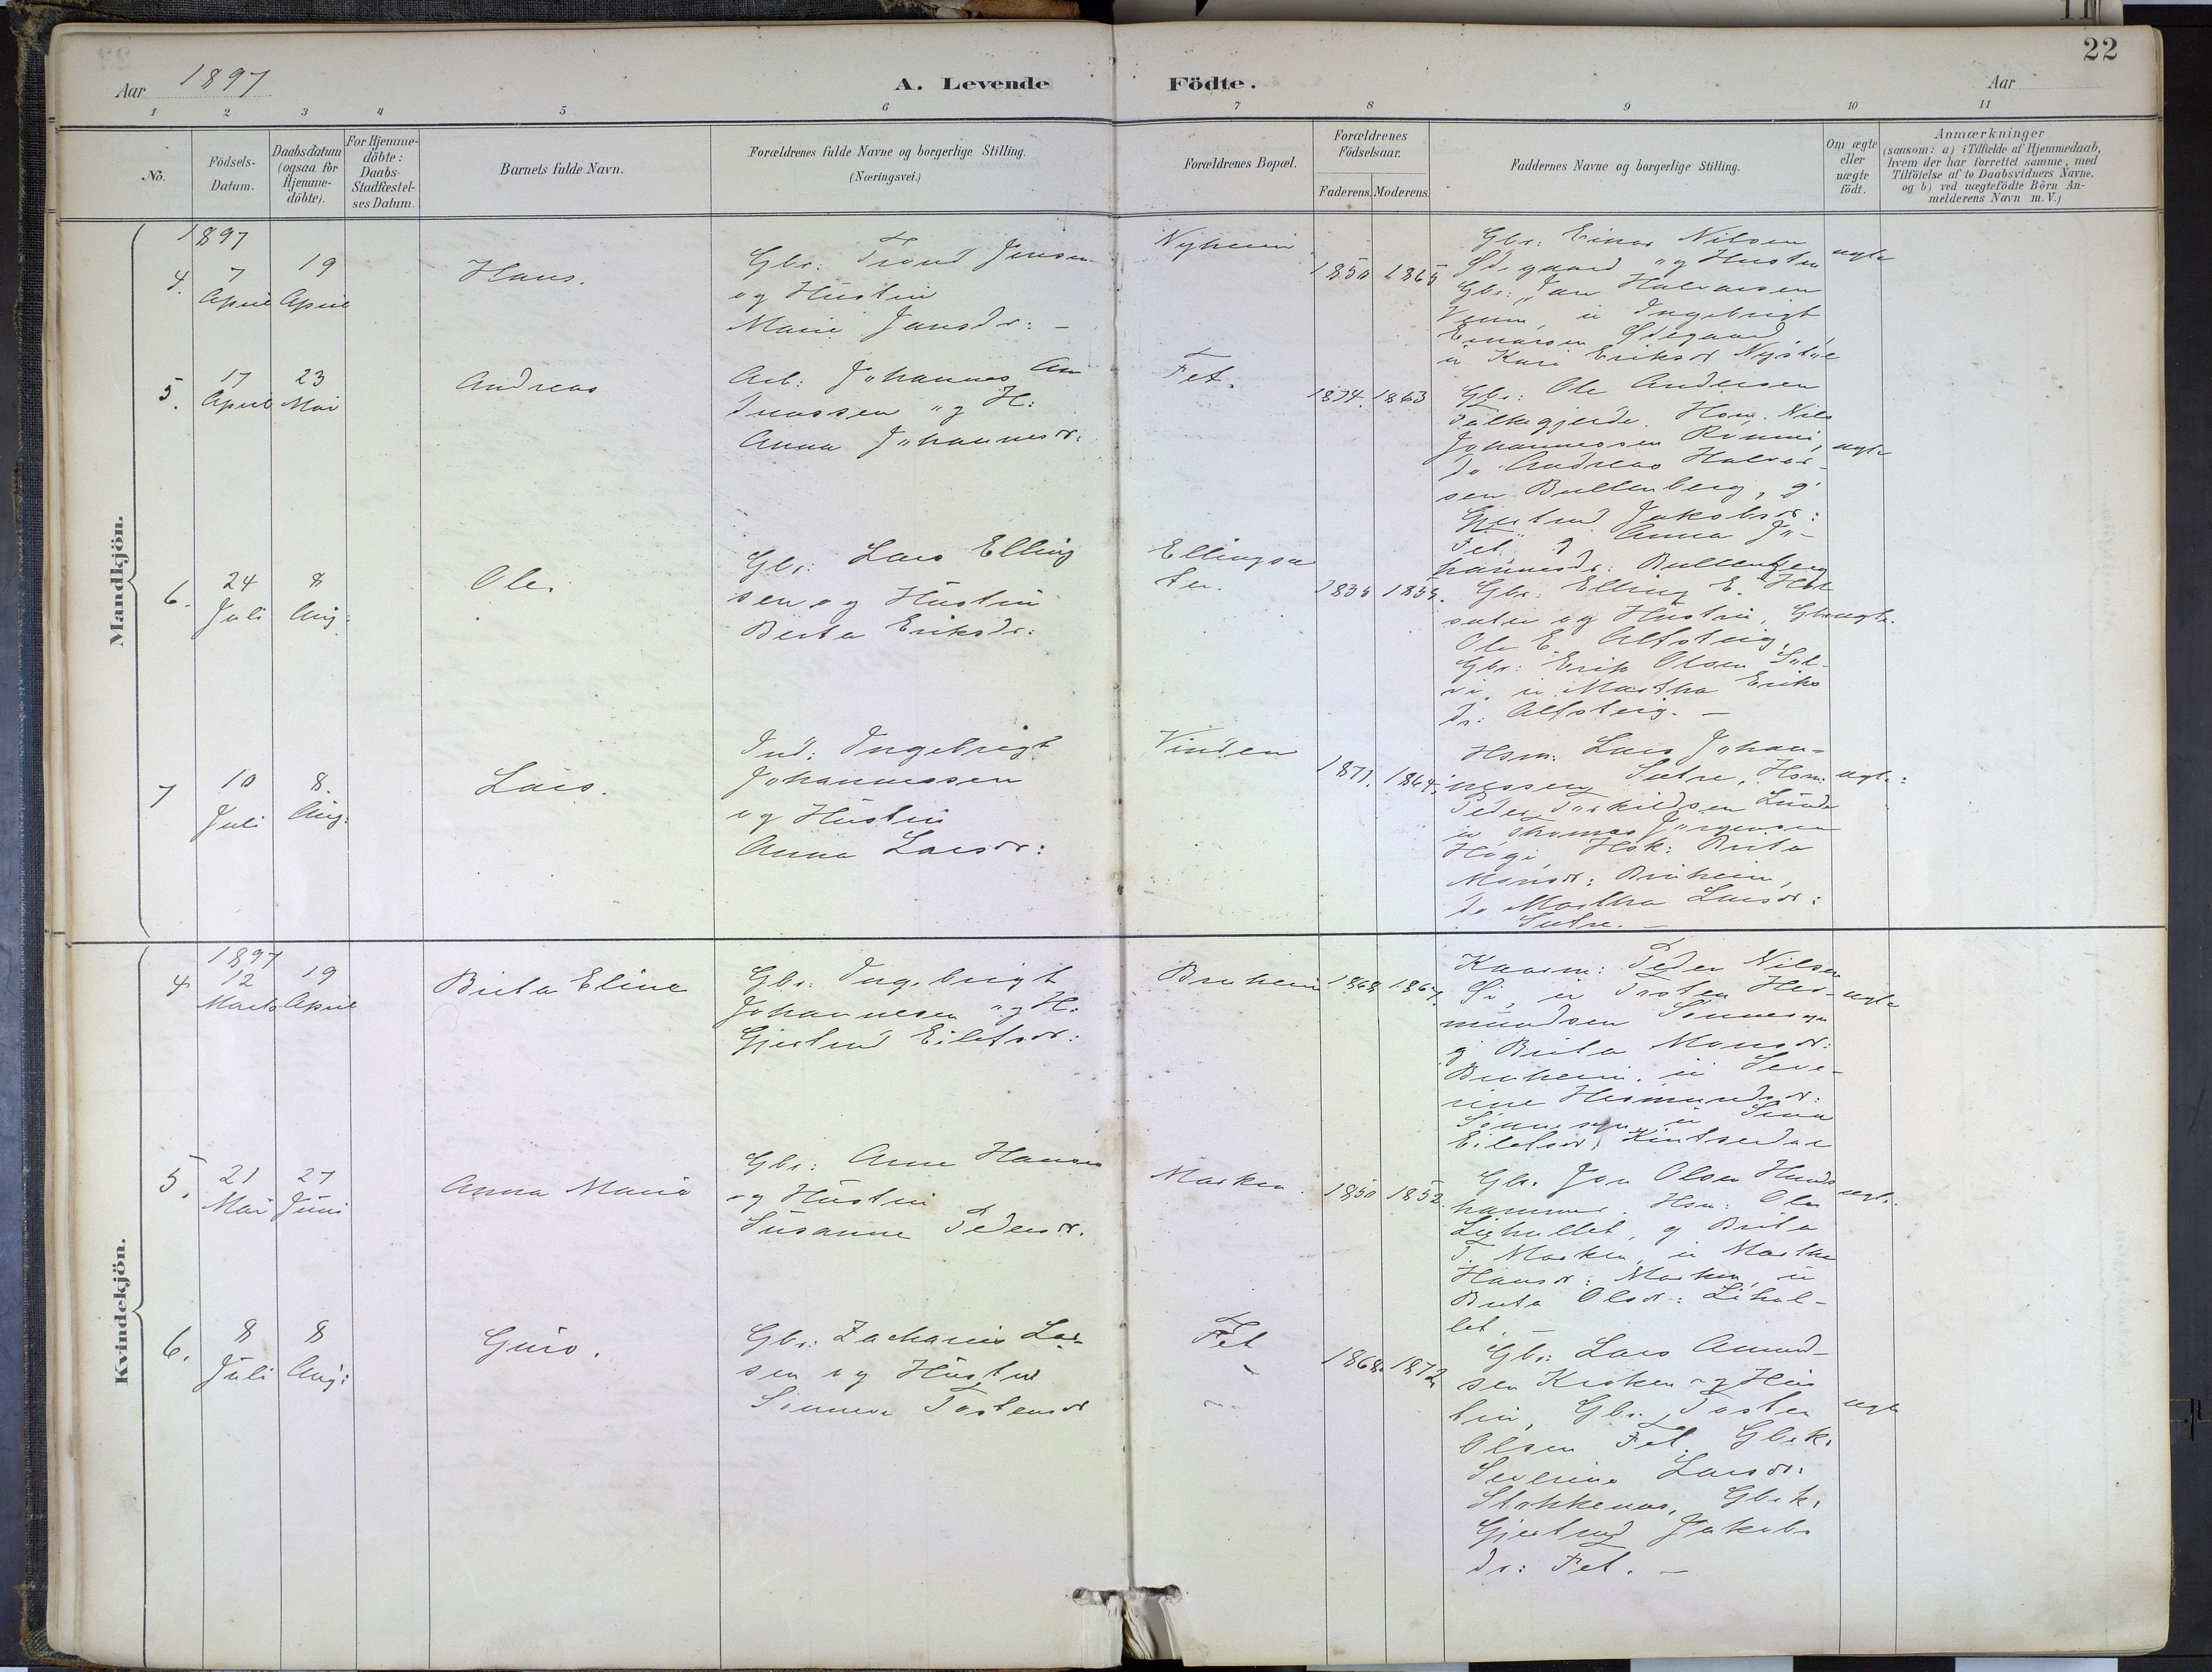 22
Aar 1897
A. Levende Födte.
Aar
1 2 3 4 5 6 7 8 9 10 11
No.
Födsels-
Datum.
Daabsdatum
(ogsaa for
Hjemme-
döbte).
For Hjemme-
döbte:
Daabs-
Stadfæstel-
ses Datum.
Barnets fulde Navn.
Forældrenes fulde Navne og borgerlige Stilling.
(Næringsvei.)
Forældrenes Bopæl.
Forældrenes
Födselsaar.
Faderens. Moderens.
Faddernes Navne og borgerlige Stilling.
Om ægte
eller
uægte
födt.
Anmærkninger
(saasom: a) i Tilfælde af Hjemmedaab,
hvem der har forrettet samme, med
Tilföielse af to Daabsvidners Navne,
og b) ved uægtefödte Börn An-
melderens Navn m. V.)
Mandkjön.
1897
4. 7 April
19 April
Hans.
Gbr: Trond Jensen
og Hustru
Marie Jansdr: –
Nyheim
1850 1865
Gbr: Einar Nilsen
Ødegaard og Hustru
Gbr: Jan Halvorsen
Venn, u Ingebrigt
Einarsen Ødegaard,
u Kari Eriksdr Nystøl
ægte
5. 17 April
23 Mai
Andreas
Arb: Johannes An
dreassen og H:
Anna Johannesdr:
Fet.
1874. 1863
Gbr: Ole Andersen
Falkegjerde. Hsm. Nils
Johannessen Rommi,
do Andreas Halvor-
sen Bullenberg, g
Gjertrud Jakobsdr:
Fet g Anna Jo-
hannesdr: Bullenberg
ægte
6. 24 Juli
8 Aug:
Ole.
Gbr: Lars Elling
sen og Hustru
Berta Eriksdr:
Ellingsæ
ter.
1835 1855.
Gbr: Elling E. Hol
sæter og Hustru, Gbr
Ole E. Alfsteig,
Gbr: Erik Olsen Søl-
vi, u Martha Eriks
dr: Alfsteig. –
ægte.
7 10 Juli
8. Aug:
Lars.
Ind: Ingebrigt
Johannessen
og Hustru
Anna Larsdr:
Vinden
1871. 1864.
Hsm. Lars Johan-
nessen Sætre, Hsm:
Peder Torkildsen Lunde
u Thomas Jørgensen
Høgi, Hsk: Brita
Monsdr: Bruheim,
do Martha Larsdr:
Sætre. –
ægte:
Kvindekjön.
1897
4 12 Marts
19 April
Brita Eline
Gbr: Ingebrigt
Johannesen og H:
Gjertrud Eilefsdr:
Bruheim
1868 1867.
Kaarm: Peder Nilsen
Øi, u Tosten Her-
mundsen Sønnesyn
g Brita Monsdr:
Bruheim, u Seve-
rine Hermundsdr:
Sønnesyn, u Sina
Eilefsdr,
ægte
5. 21 Mai
27 Juni
Anna Maria
Gbr: Arne Hansen
og Hustru
Susanne Pedersdr.
Marken.
1850 1852.
Gbr. Jon Olsen Hunds
hammer. Hsm: Ole
Liehullet, g Brita
T. Marken, u Martha
Hansdr: Marken, u
Brita Olsdr: Lihul-
let. –
ægte.
6. 8 Juli
8 Aug:
Guro.
Gbr. Zacharias Lar-
sen og Hustru
Sønneva Tostensdr
Fet
1868. 1872
Gbr: Lars Amund-
sen Kroken og Hus
tru, Gbr: Tosten
Olsen Fet. Gbrk:
Severine Larsdr:
Stokkenæs, Gbrk:
Gjertrud Jakobs
dr: Fet. –
ægte